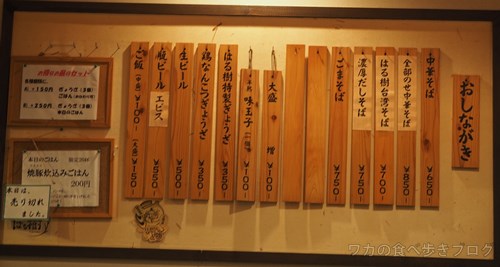 おしながき
中華そば ¥650
全部のせ中華そば ¥850
はる樹台湾そば ¥700
濃厚だしそば ¥750
ごまそば ¥750
大盛 増 ¥100
味玉子 ¥100
はる樹特製ぎょうざ ¥300
鶏なんこつぎょうざ ¥350
生ビール ¥500
瓶ビール ヱビス ¥550
ご飯 ¥100
本日のごはん
焼豚炊込みごはん
200円
本日は、
売り切れ
ました。
ワカの食べ歩きブログ